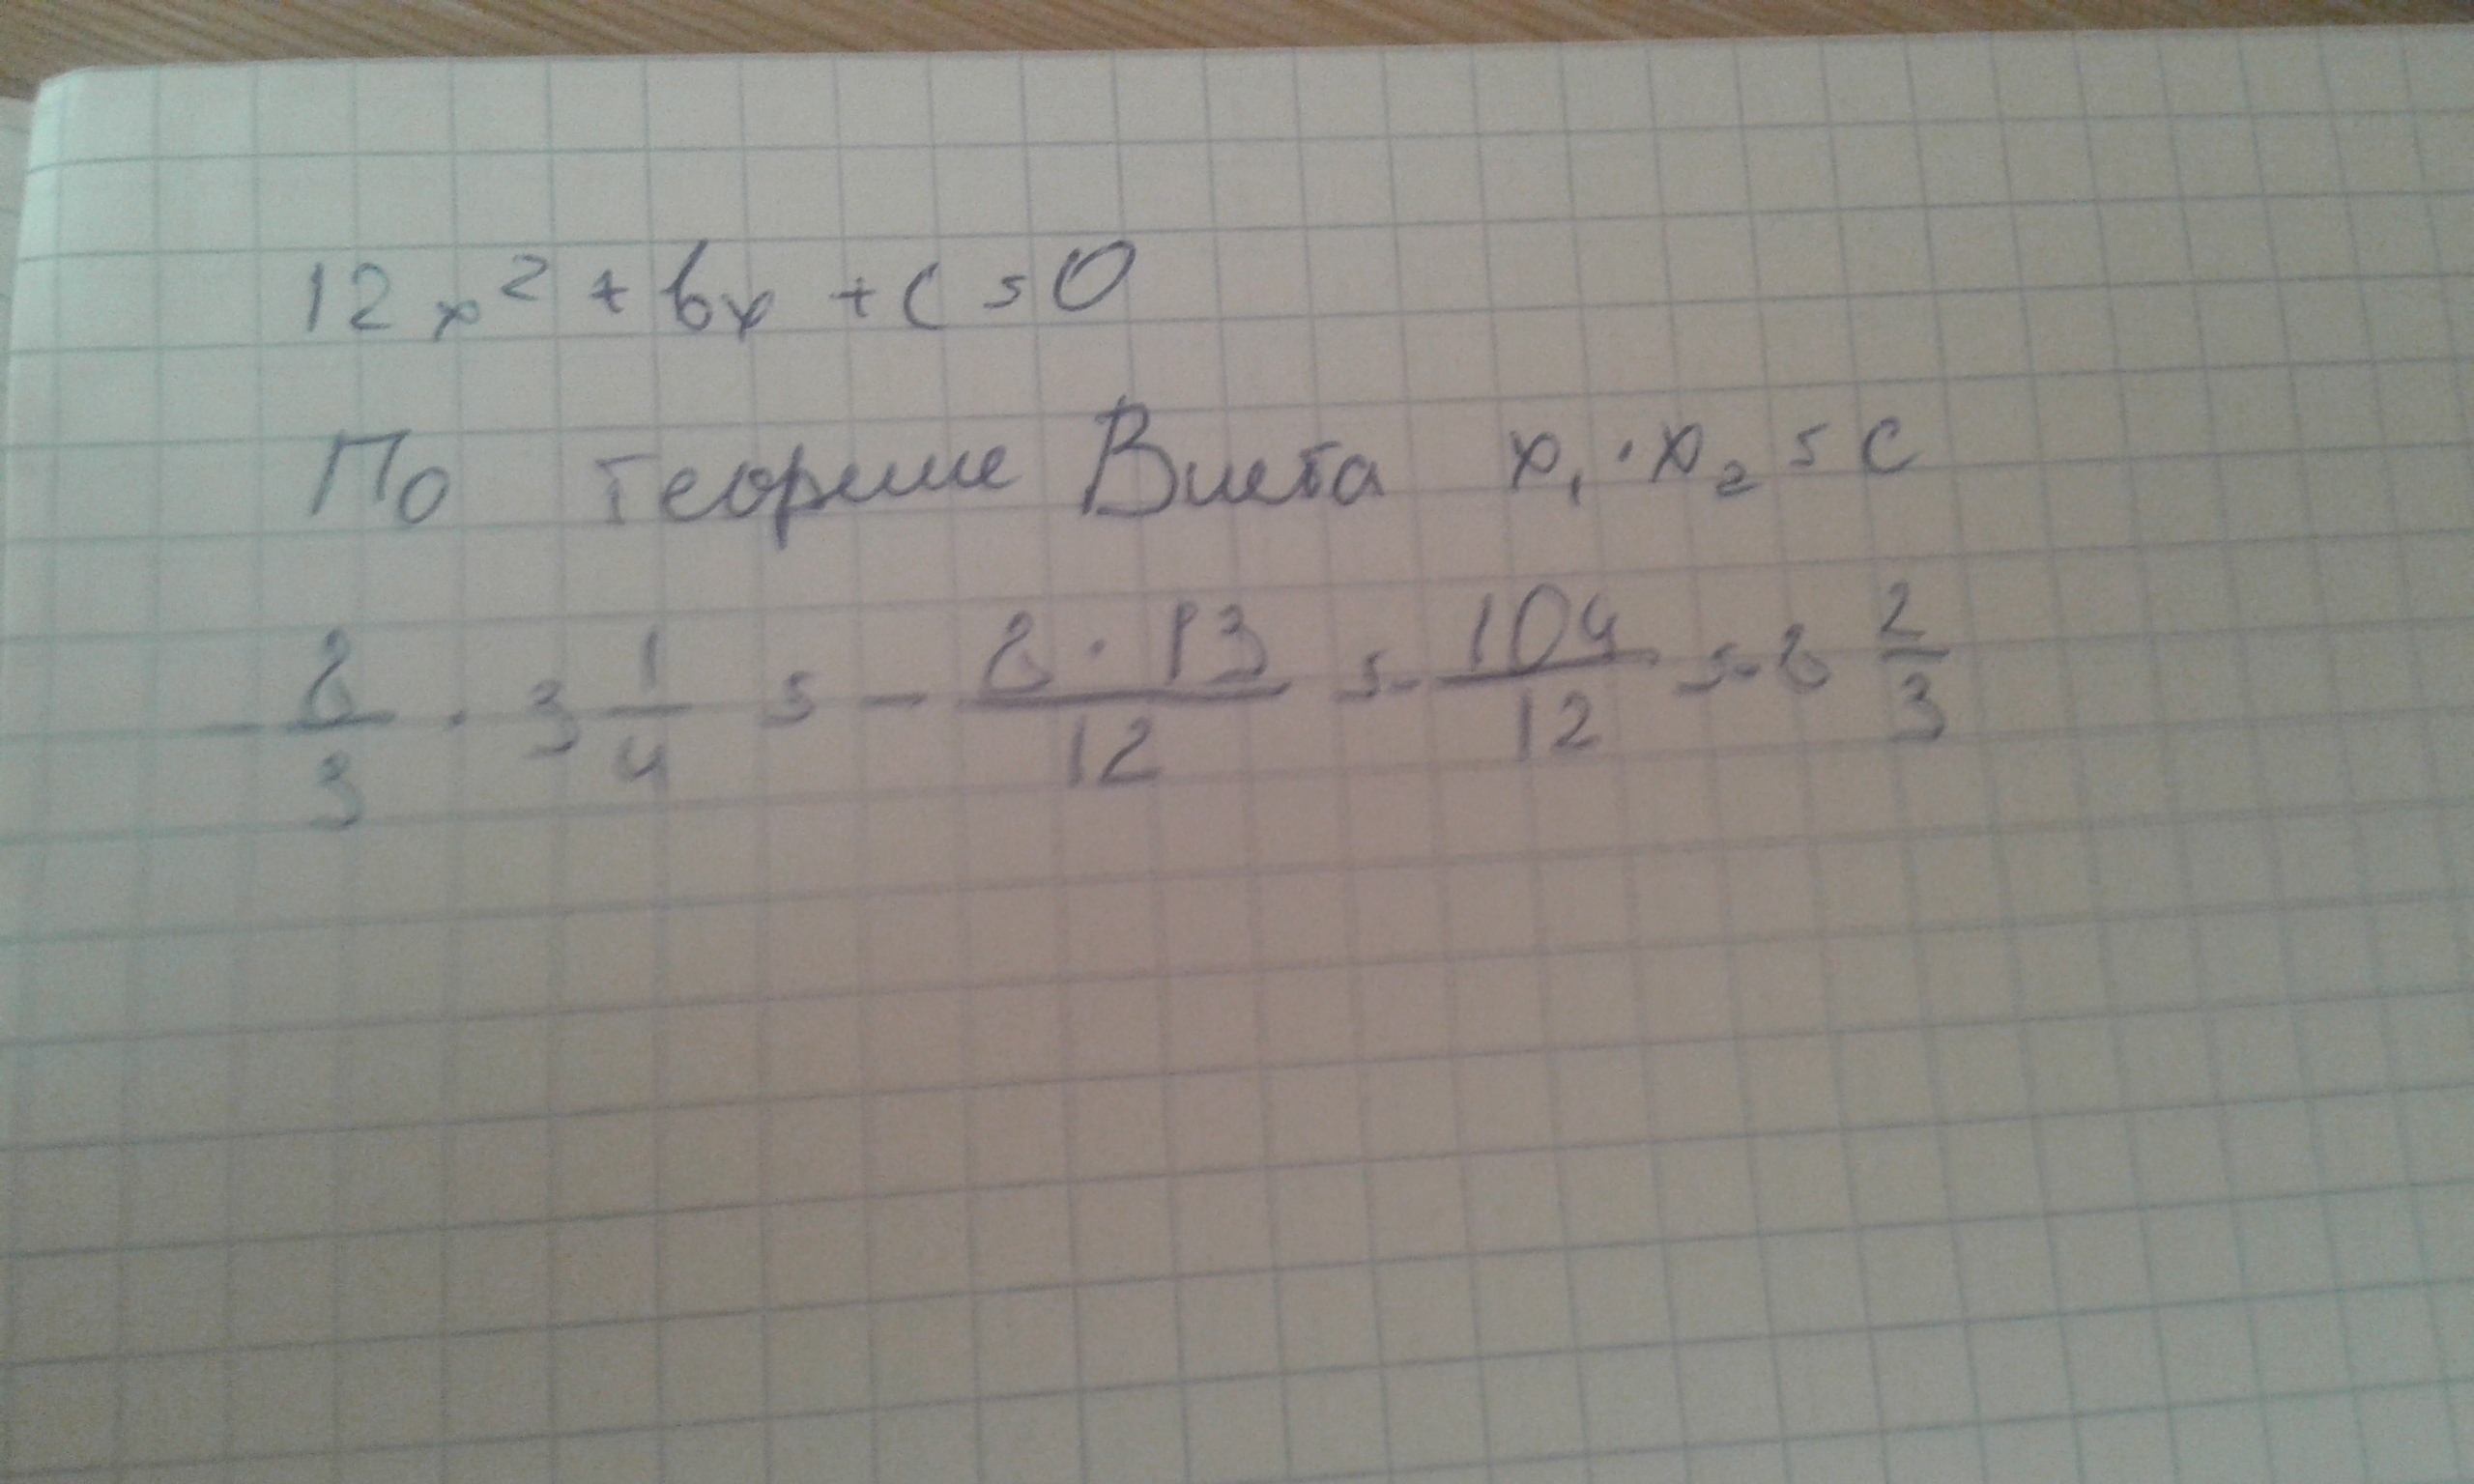 12x² + bx + c = 0
По теореме Виета x₁ · x₂ = c
- 8/3 · 3 1/4 = - 8 · 13/12 = - 104/12 = - 8 2/3